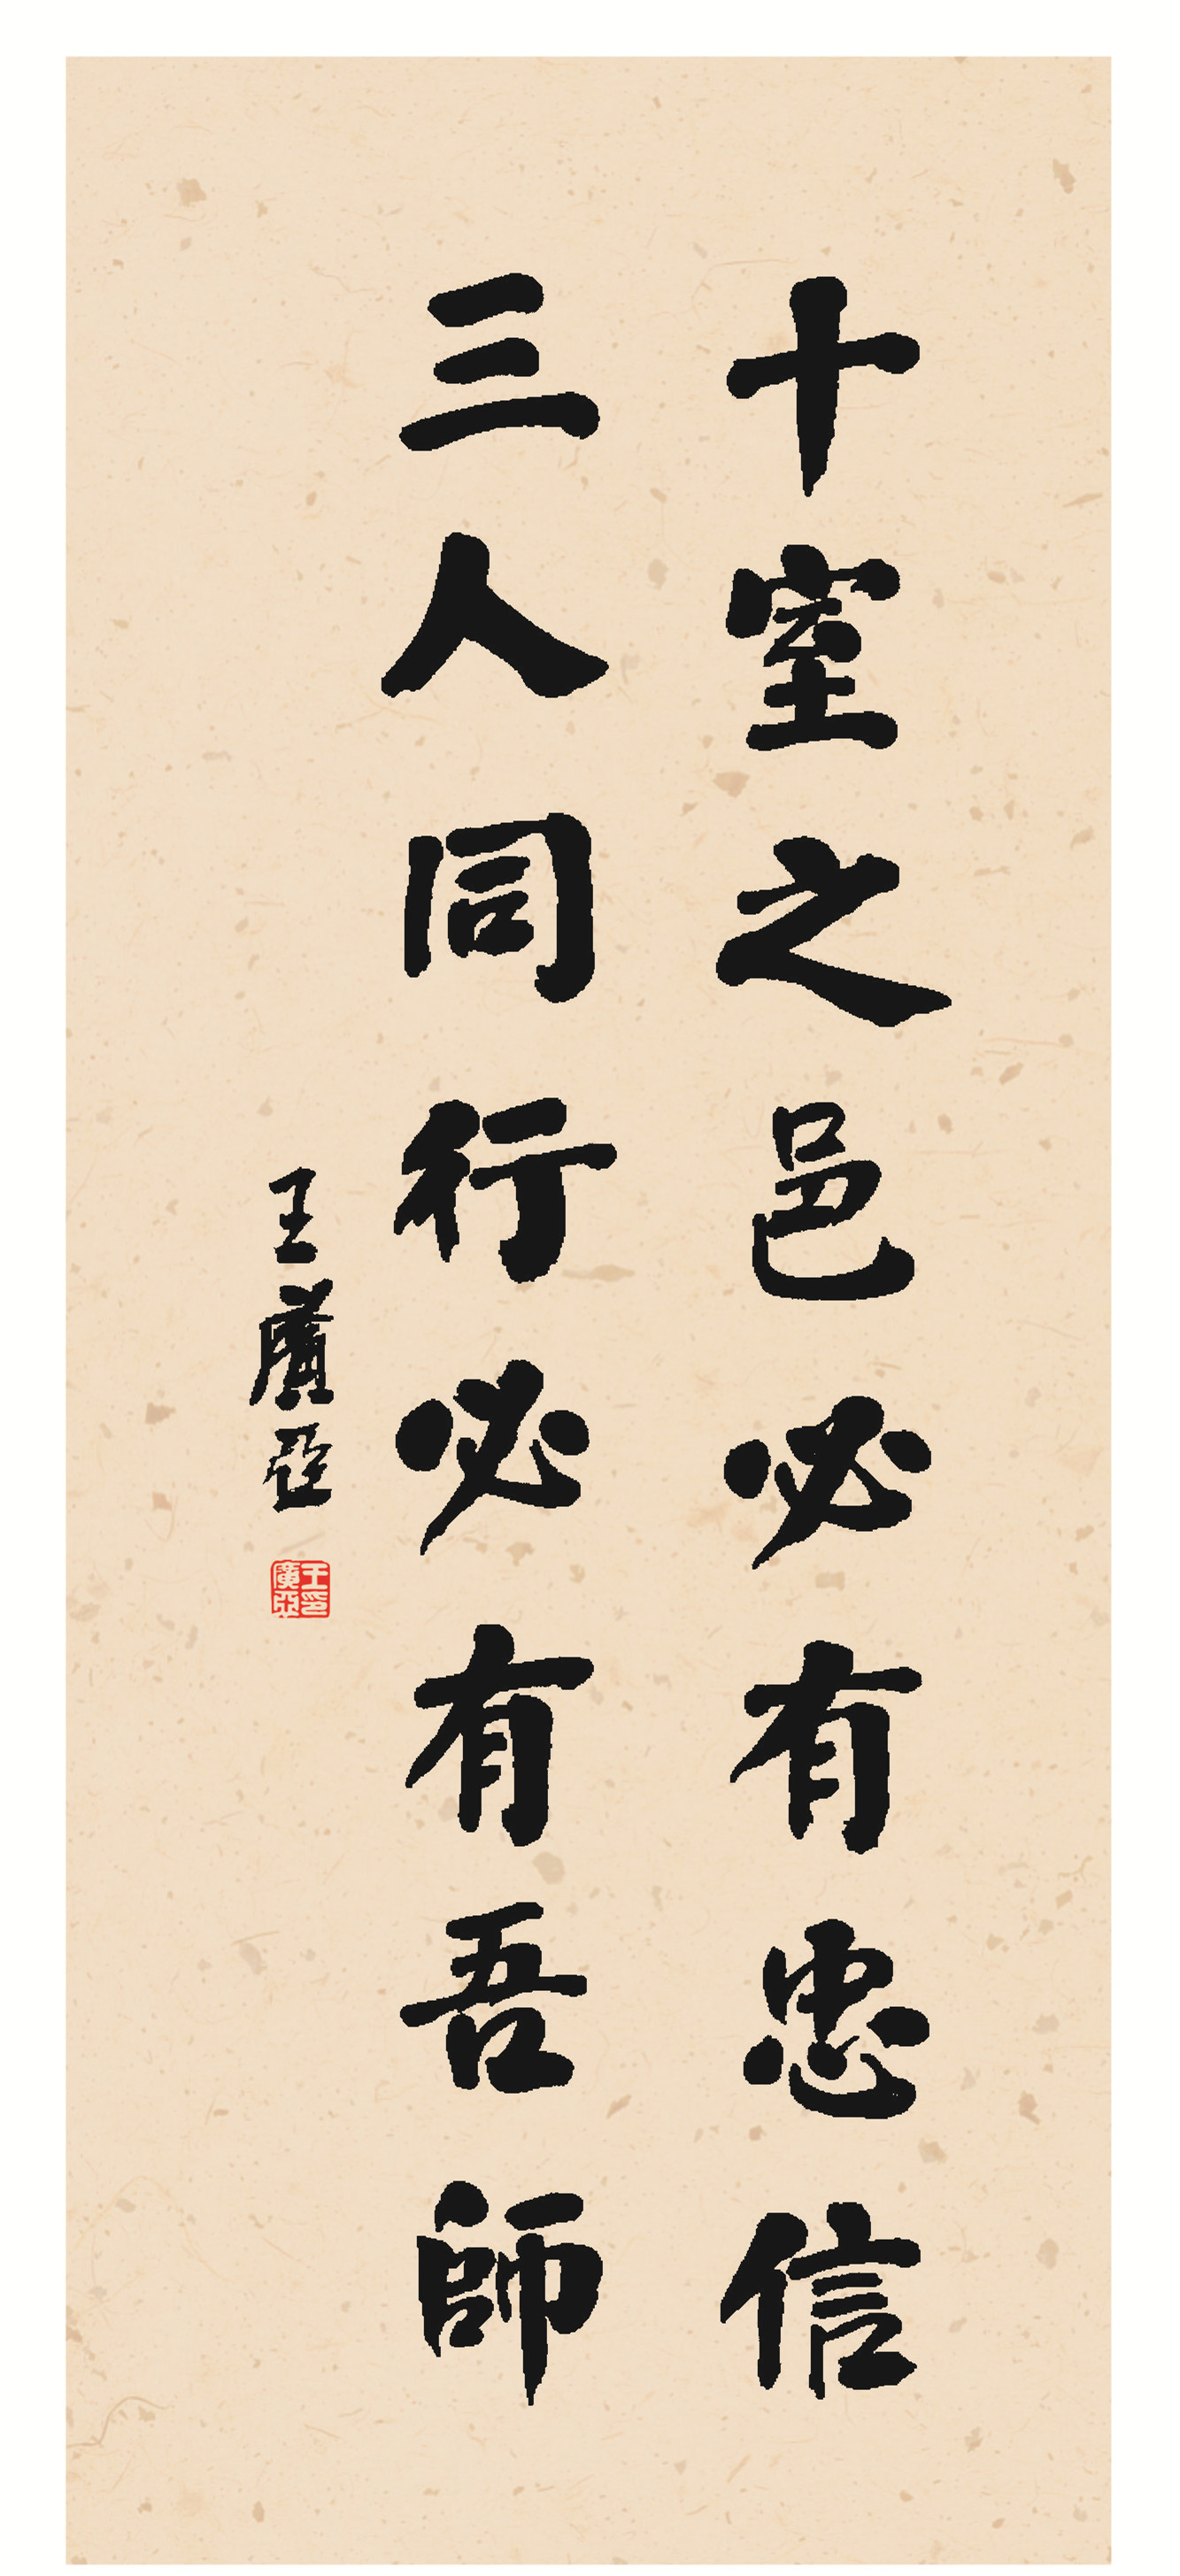 十室之邑必有忠信
三人同行必有吾師
王廣亞
王印廣亞